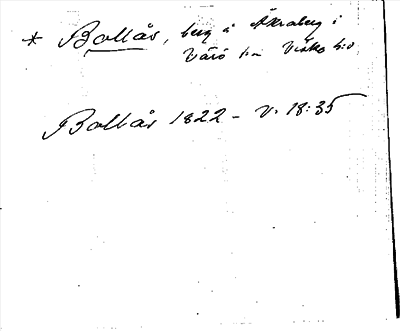 * Bollås, berg å Åkraberg i
Värö sn Viske hd
Bollås 1822 - V. 18:35